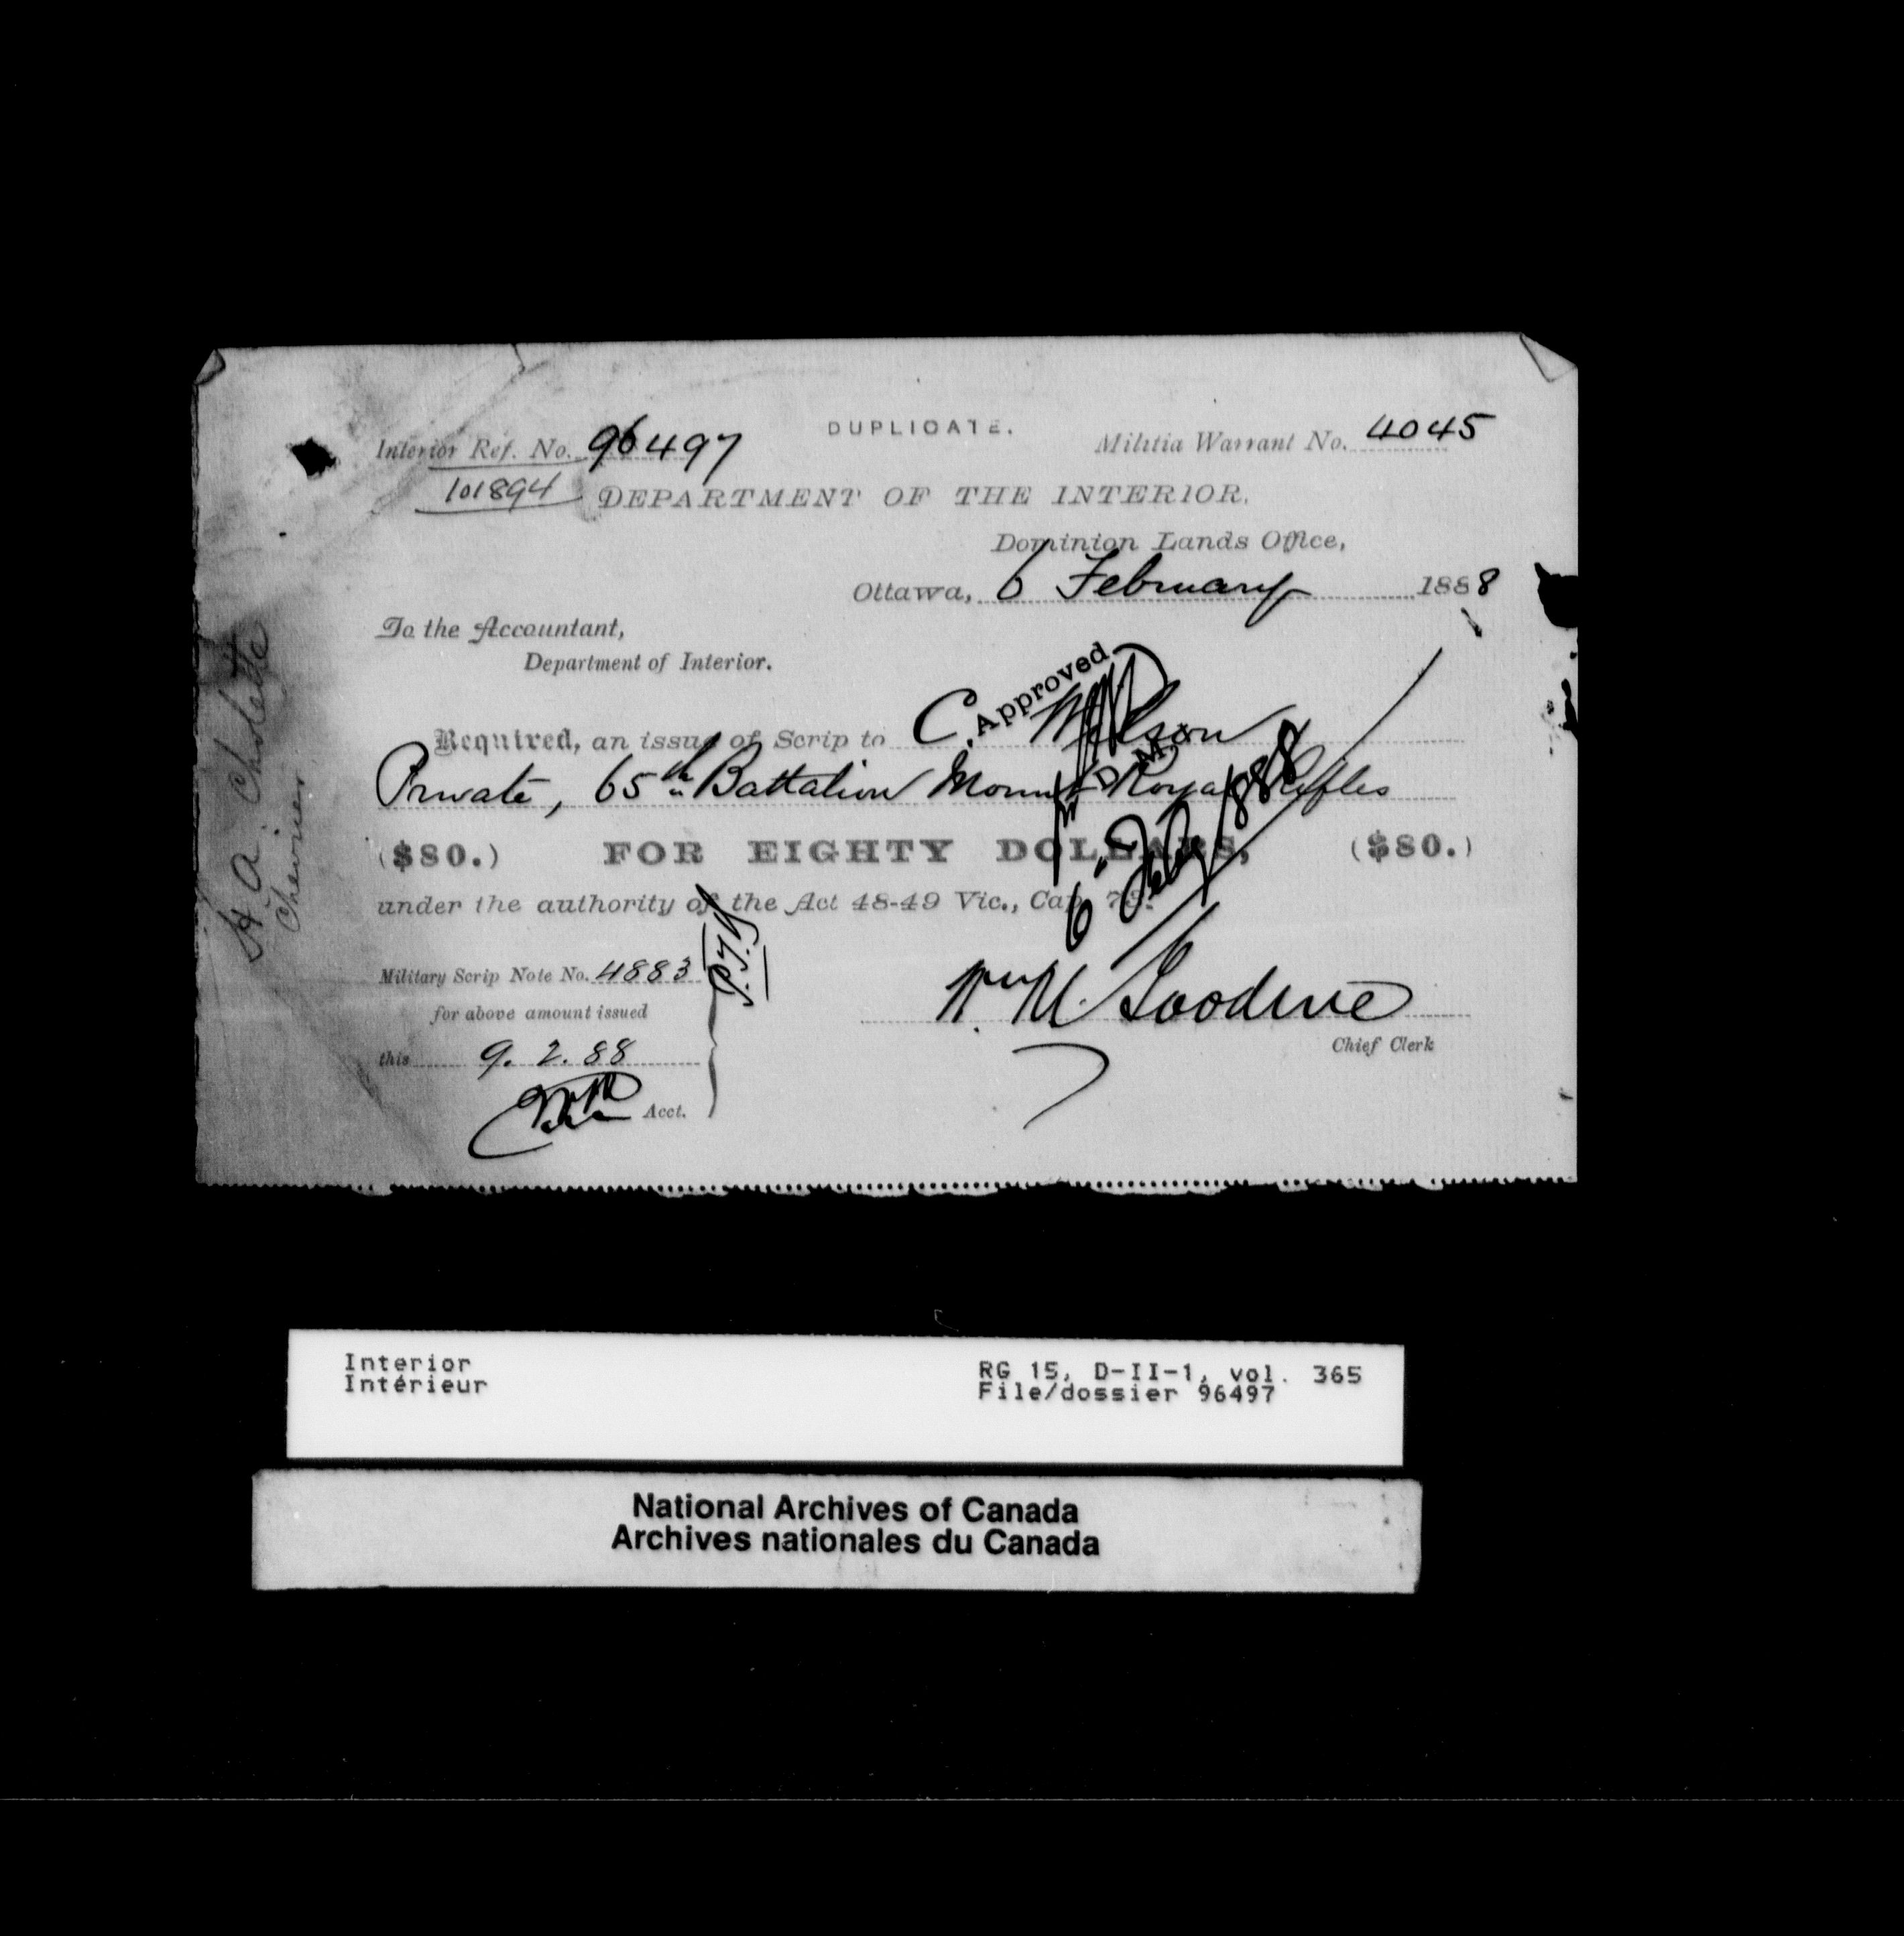 DUPLICATE.
Interior Ref. No. 96497
Militia Warrant No. 4045
101894
DEPARTMENT OF THE INTERIOR.
Dominion Lands Office,
Ottawa, 6 February 1888
To the Accountant,
Department of Interior.
Approved
Required, an issue of Scrip to C.
Private, 65th Battalion Mount Royal Rifles
D. M.
6 Feby/888
($80.) FOR EIGHTY DOLLARS, ($80.)
under the authority of the Act 48-49 Vic., Cap. 73.
Military Scrip Note No. 4883
for above amount issued
this 9. 2. 88
Acct.
Wm M. Goodeve
Chief Clerk
H. A. Cholette
Interior
Intérieur
RG 15, D-II-1, vol. 365
File/dossier 96497
National Archives of Canada
Archives nationales du Canada